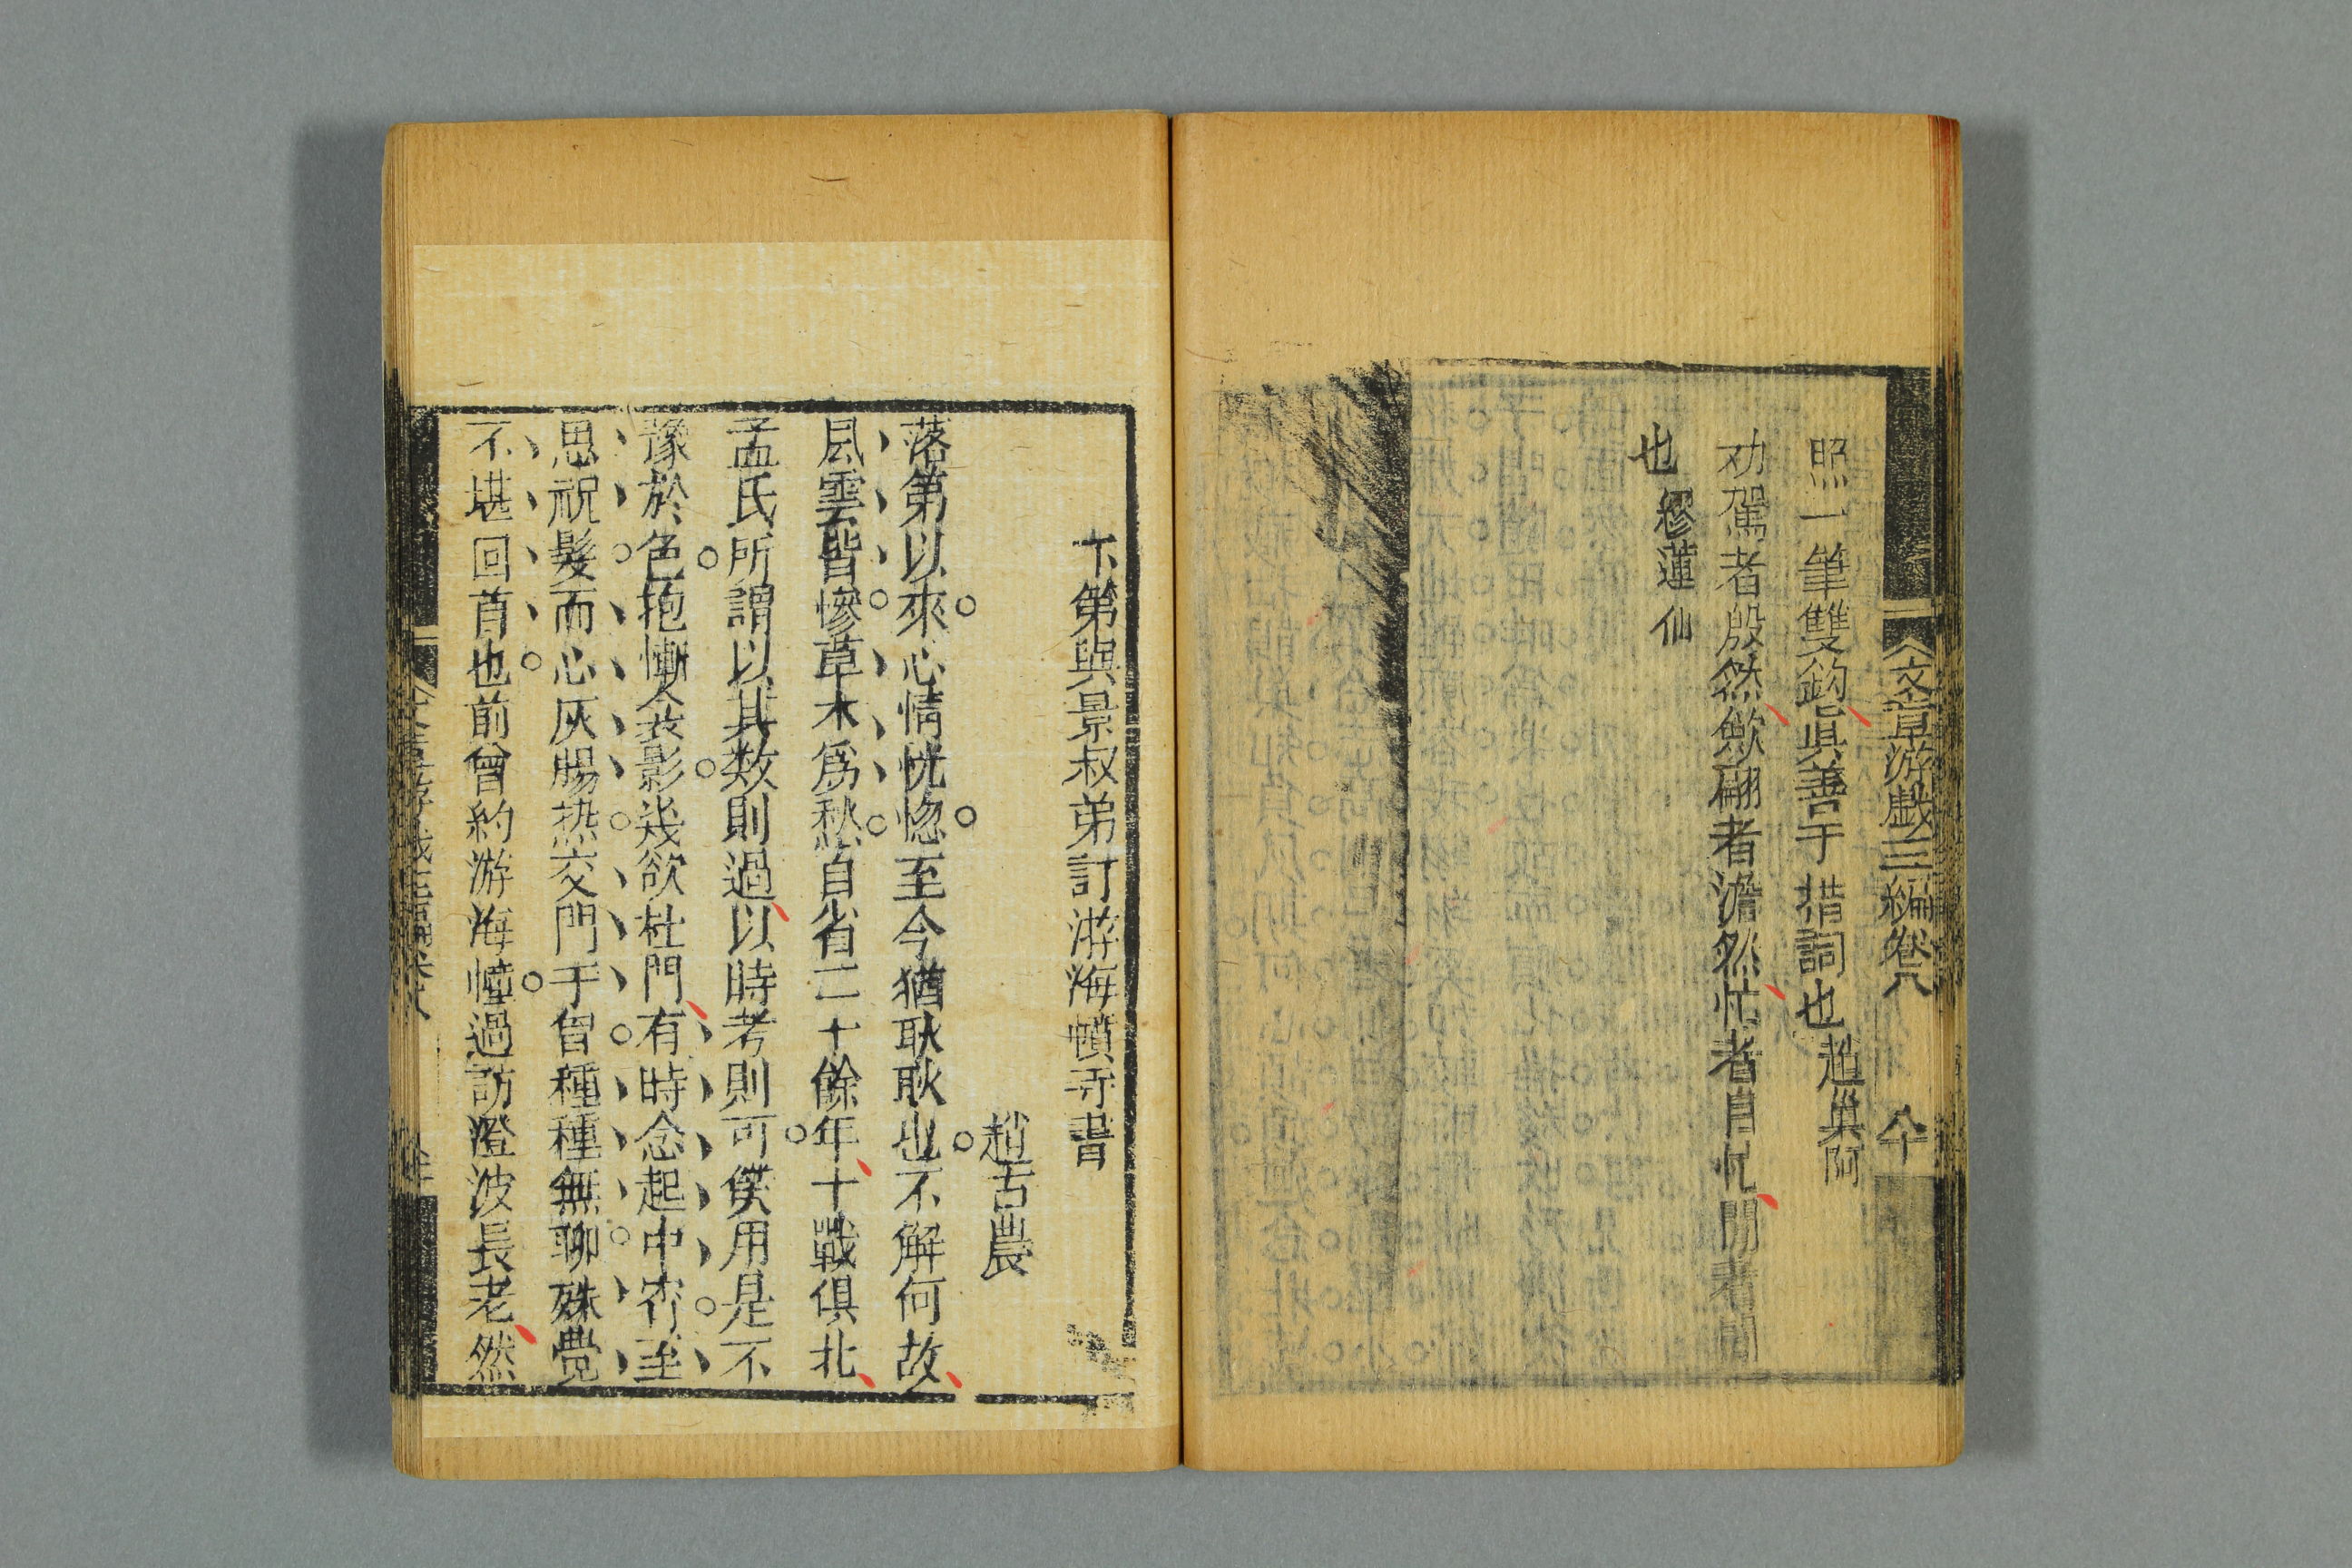 文章游戲三編 卷八 全
照一筆雙鈎真善于措詞也 趙巢阿
劝駕者殷然歘翮者澹然忙者自忙閒者閒
也 繆蓮仙
下第與景叔弟訂游海幢寺書
趙古農
落第以來心情恍惚至今猶耿耿也不解何故
風雲皆慘草木為秋自省二十餘年十戰俱北
孟氏所謂以其数則過以時考則可僕用是不
豫於色抱慚衾影幾欲杜門有時念起中宵至
思祝髮而心灰腸热交鬥于胷種種無聊殊覺
不堪回首也前曾約游海幢過訪澄波長老然